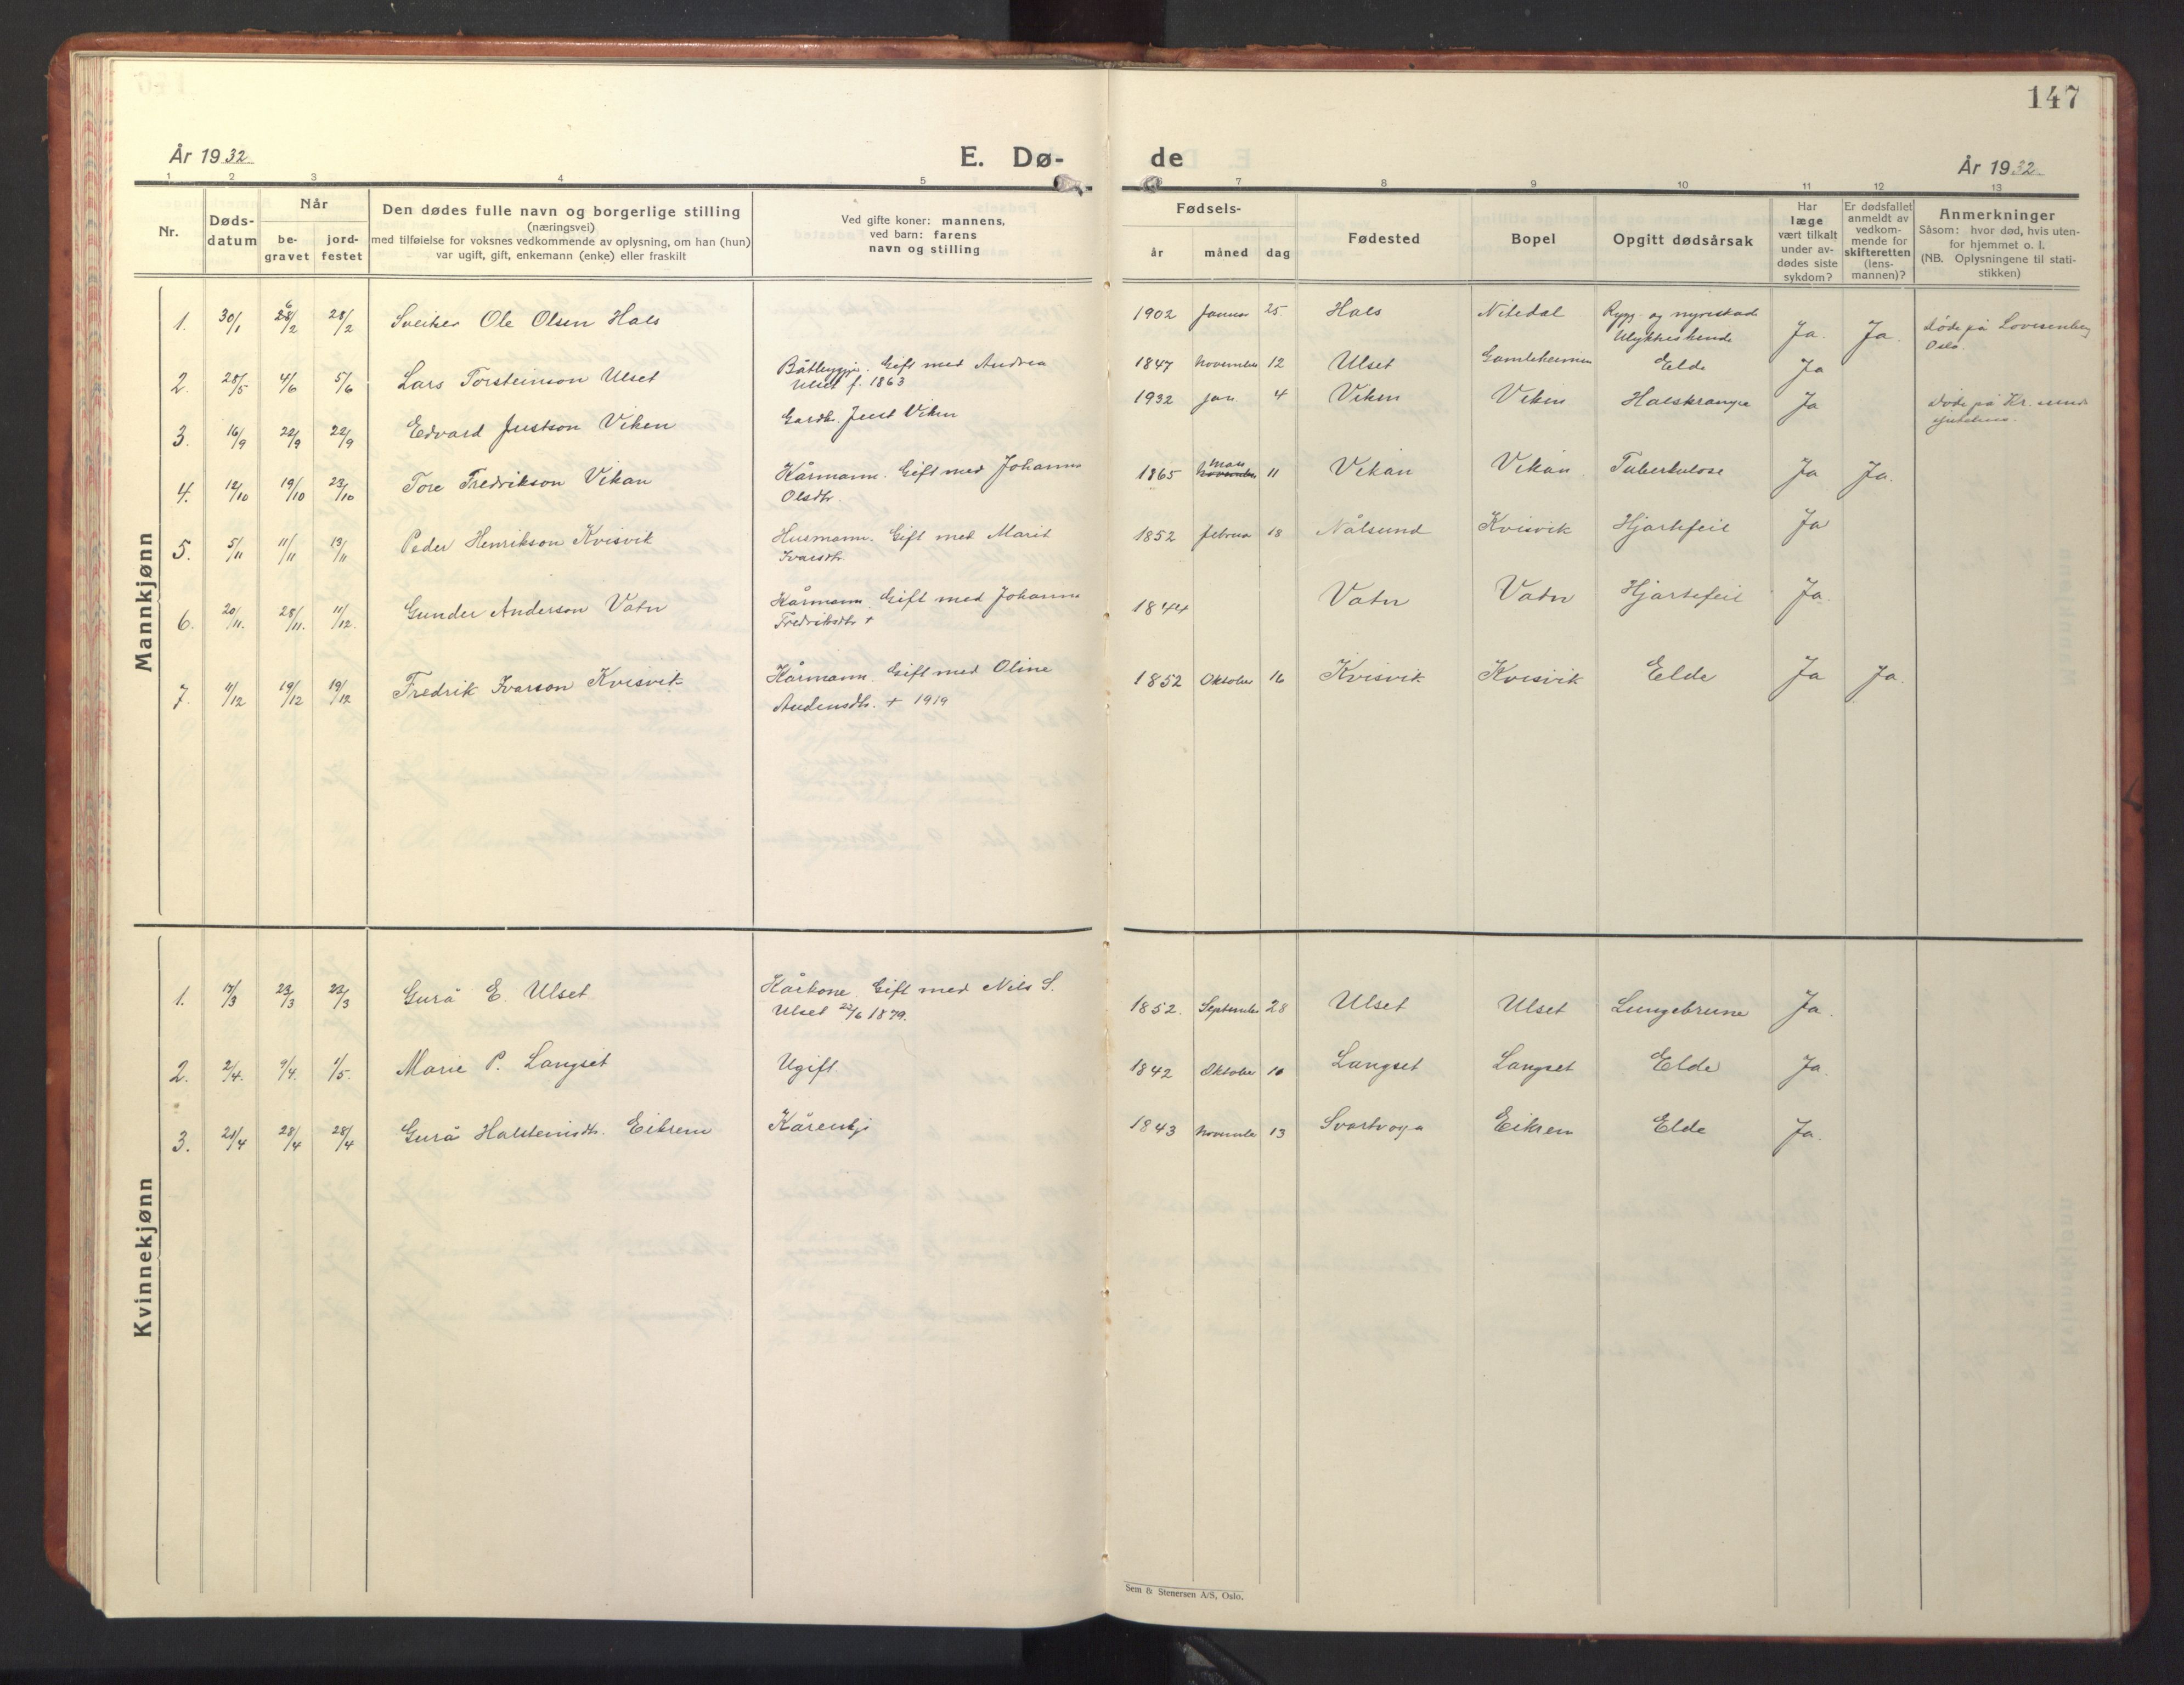 147
År 1932
E. Dø- de
År 1932
1 2 3 4 5 6 7 8 9 10 11 12 13
Nr.
Døds-
datum
Når
be-
gravet
jord-
festet
Den dødes fulle navn og borgerlige stilling
(næringsvei)
med tilføielse for voksnes vedkommende av oplysning, om han (hun)
var ugift, gift, enkemann (enke) eller fraskilt
Ved gifte koner: mannens,
ved barn: farens
navn og stilling
Fødsels-
år
måned
dag
Fødested
Bopel
Opgitt dødsårsak
Har
læge
vært tilkalt
under av-
dødes siste
sykdom?
Er dødsfallet
anmeldt av
vedkom-
mende for
skifteretten
(lens-
mannen)?
Anmerkninger
Såsom: hvor død, hvis uten-
for hjemmet o. l.
(NB. Oplysningene til stati-
stikken)
Mannkjønn
1. 30/1 28/2 Sveitser Ole Olsen Hals 1902 Januar 25 Hals Nitedal Rygg- og nyreskade Ja. Ja. Døde på Lovisenberg
Ulykkeshende Oslo
2. 28/5 4/6 5/6 Lars Torsteinson Ulset Båtbyggje. Gift med Andrea 1847 November 12 Ulset Gamleheimen Elde Ja
Ulset f. 1863
3. 16/9 22/9 22/9 Edvard Justson Viken Gardbr. Just Viken 1932 jan 4 Viken Viken Halskrangel Ja Døde på Kr.sunds
sjukehus.
4. 12/10 19/10 23/10 Tore Fredrikson Vikan Kårmann. Gift med Johanna 1865 mars 11 Vikan Vikan Tuberkulose Ja Ja.
Olsdtr. November
5. 5/11 11/11 13/11 Peder Henrikson Kvisvik Husmann. Gift med Marit 1852 februar 18 Nålsund Kvisvik Hjartefeil Ja
Ivarsdtr.
6. 20/11. 28/11. 11/12. Gunder Anderson Vatn Kårmann. Gift med Johanna 1844 Vatn Vatn Hjartefeil Ja.
Fredriksdtr +
7. 11/12 19/12 19/12 Fredrik Ivarson Kvisvik Kårmann. Gift med Oline 1852 Oktober 16 Kvisvik Kvisvik Elde Ja Ja.
Andersdtr. + 1919
Kvinnekjønn
1. 17/3 23/3 23/3 Gurå E. Ulset Kårkone. Gift med Nils S. 1852. September 28 Ulset Ulset Lungebrune Ja.
Ulset 22/6 1879.
2. 2/4. 9/4. 1/5. Marie P. Langset Ugift 1842 Oktober 10 Langset Langset Elde Ja.
3. 21/4 28/4 28/4 Gurå Halsteinsdtr. Eikrem Kårenkje 1843 November 13 Svartvoga Eikrem Elde Ja.
Sem & Stenersen A/S, Oslo.